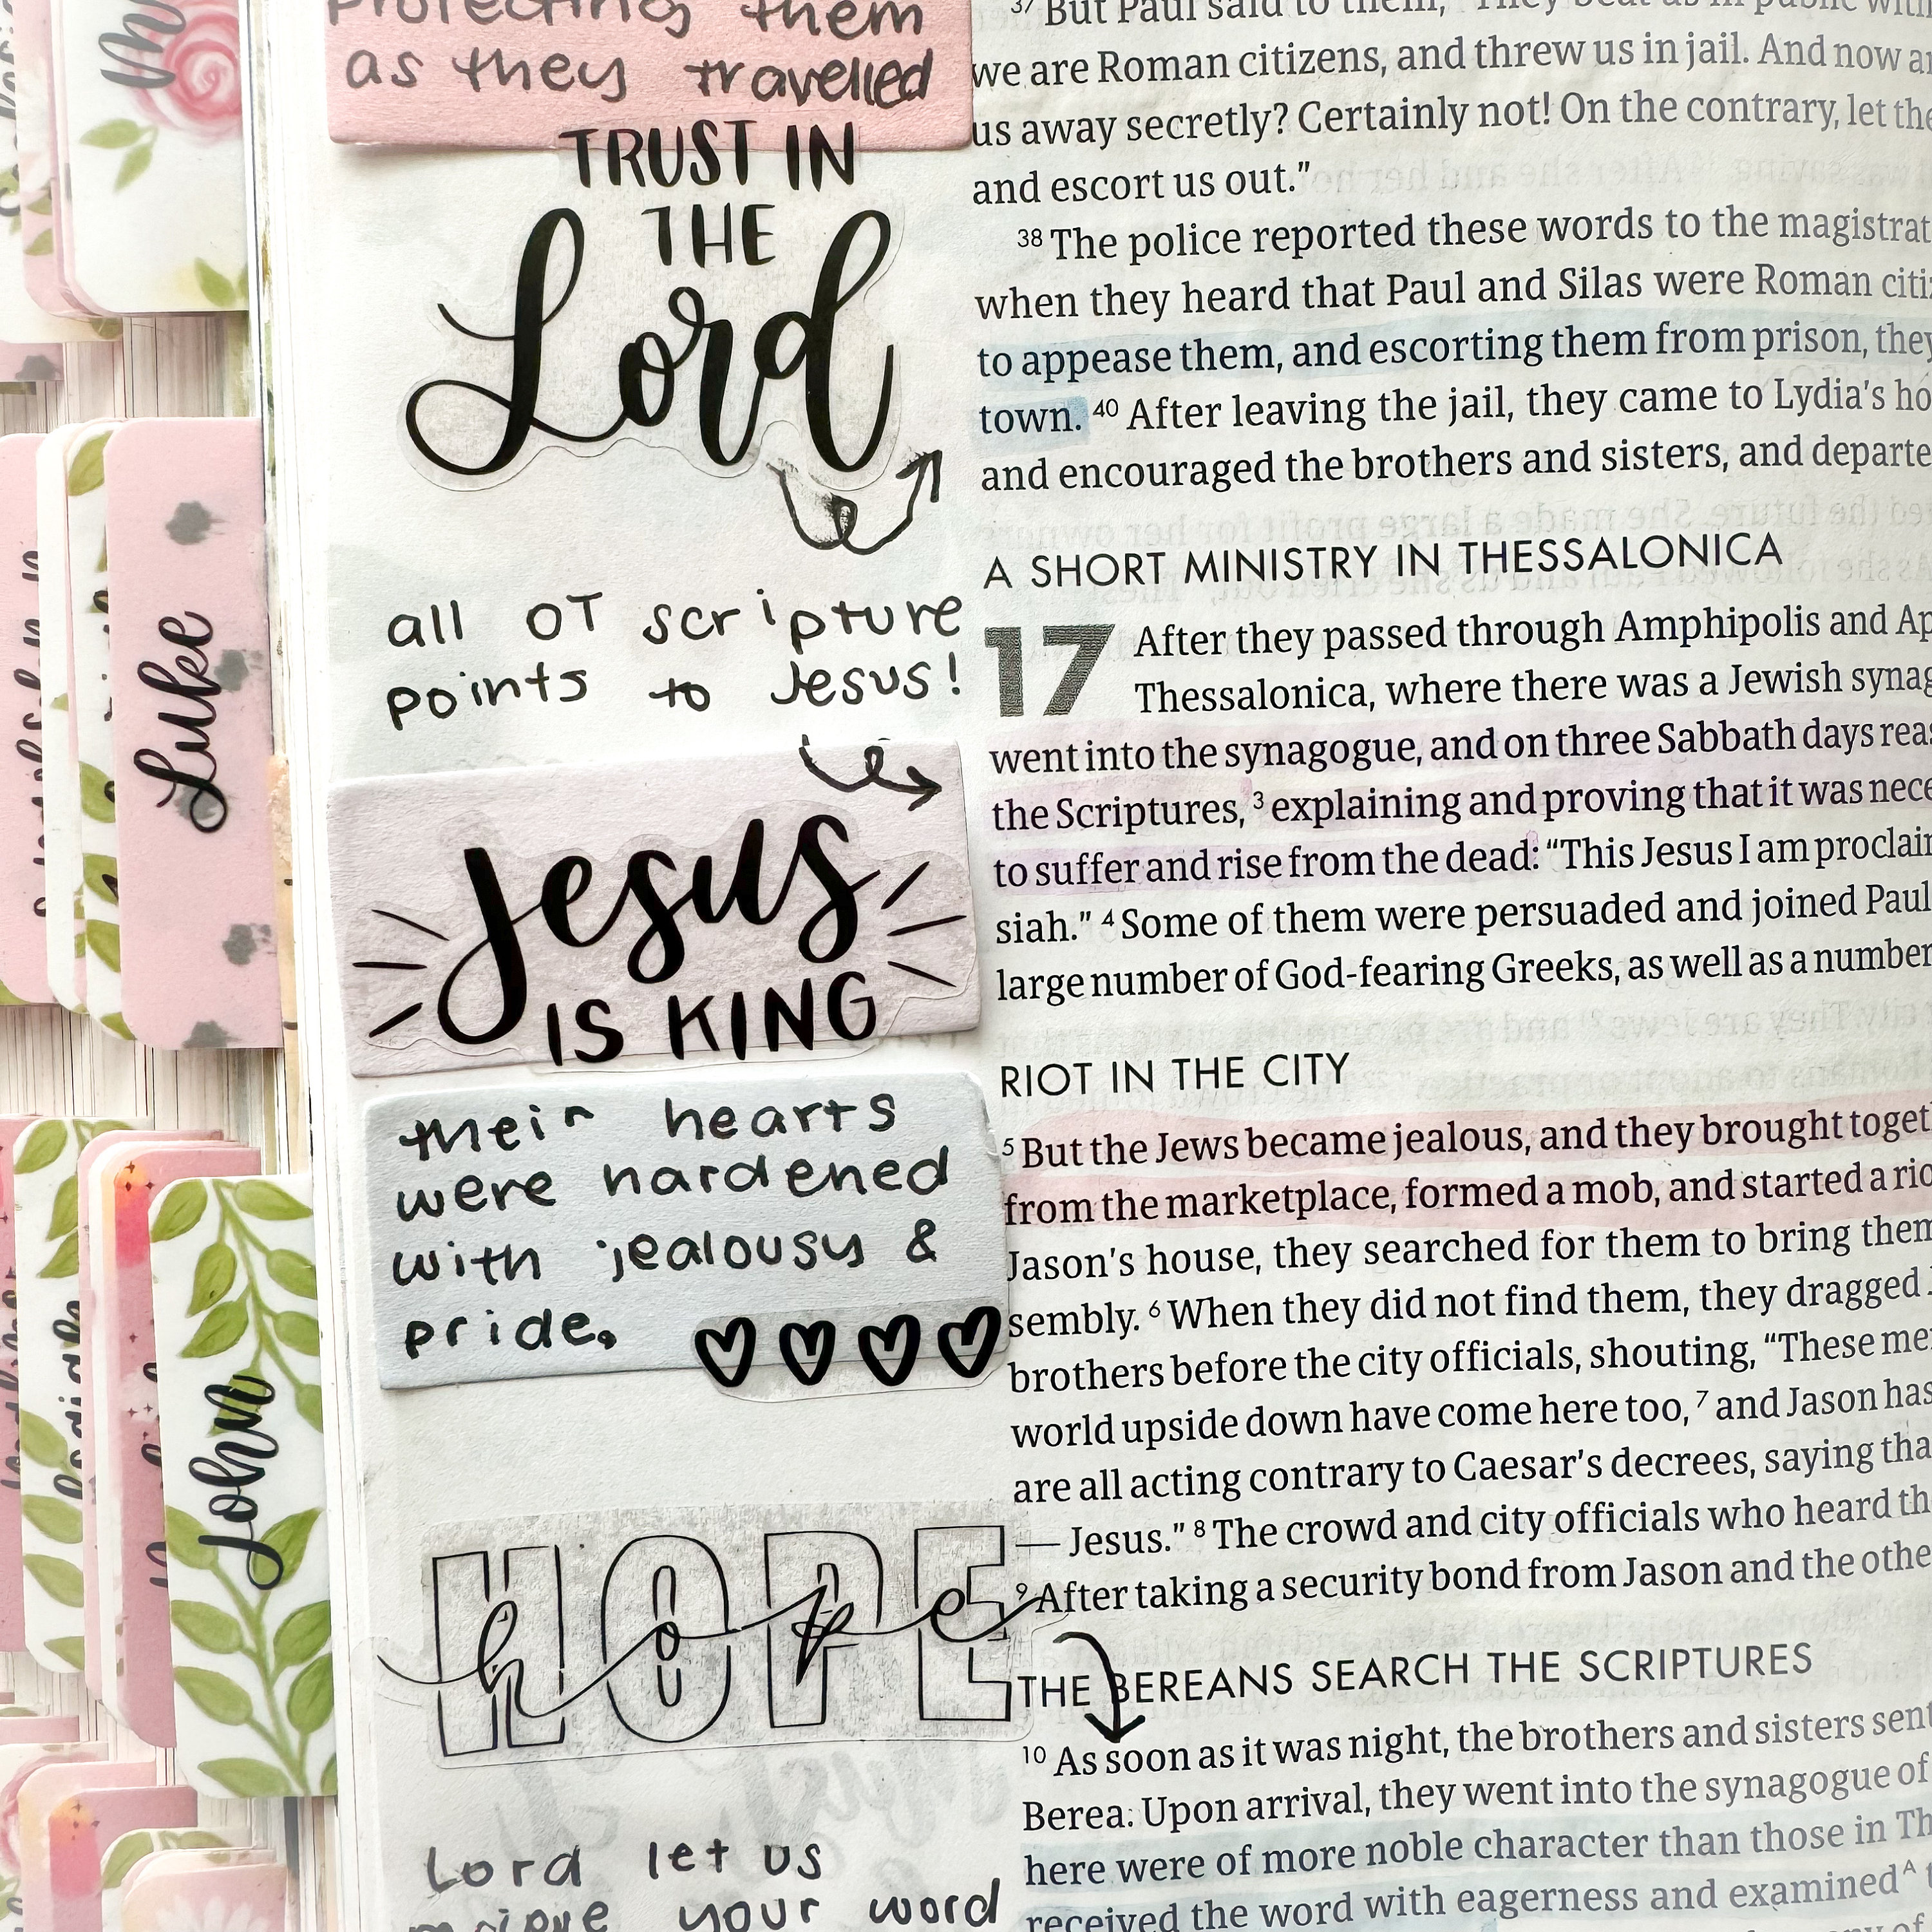 Protecting them
as they travelled
TRUST IN
THE
Lord
all OT scripture
points to Jesus!
Jesus
IS KING
their hearts
were hardened
with jealousy &
pride.
HOPE
hope
Lord let us
your word
Luke
John
37 But Paul said to them, "They beat us in public
we are Roman citizens, and threw us in jail. And now
us away secretly? Certainly not! On the contrary, let
and escort us out."
38 The police reported these words to the
when they heard that Paul and Silas were Roman
to appease them, and escorting them from prison, they
town. 40 After leaving the jail, they came to Lydia's
and encouraged the brothers and sisters, and
A SHORT MINISTRY IN THESSALONICA
17 After they passed through Amphipolis and
Thessalonica, where there was a Jewish
went into the synagogue, and on three Sabbath days
the Scriptures, 3 explaining and proving that it was
to suffer and rise from the dead: "This Jesus I am
siah." 4 Some of them were persuaded and joined Paul
large number of God-fearing Greeks, as well as a number
RIOT IN THE CITY
5 But the Jews became jealous, and they brought
from the marketplace, formed a mob, and started a
Jason's house, they searched for them to bring them
sembly. 6 When they did not find them, they dragged
brothers before the city officials, shouting, "These
world upside down have come here too, 7 and Jason has
are all acting contrary to Caesar's decrees, saying
— Jesus." 8 The crowd and city officials who heard
9 After taking a security bond from Jason and the
THE BEREANS SEARCH THE SCRIPTURES
10 As soon as it was night, the brothers and sisters sent
Berea. Upon arrival, they went into the synagogue of
here were of more noble character than those in
received the word with eagerness and examined A